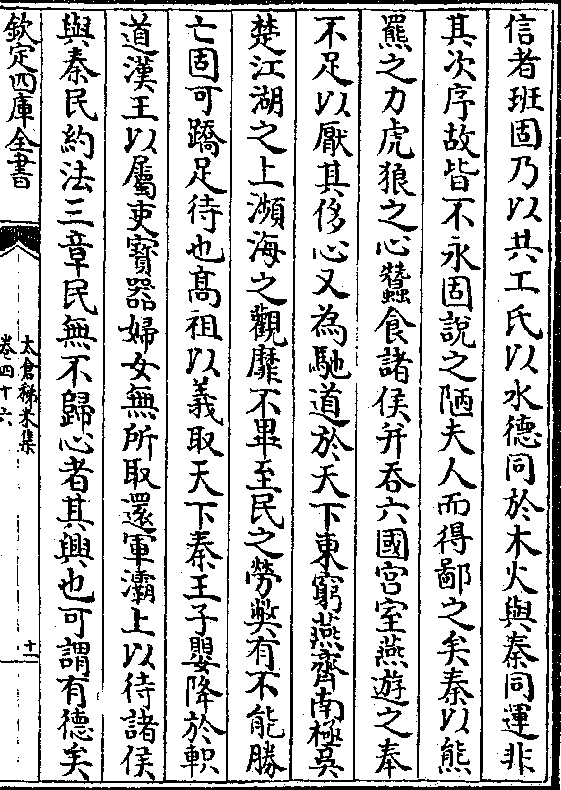 信者班固乃以共工氏以水德同於木火與秦同運非
其次序故皆不永固說之陋夫人而得鄙之矣秦以熊
羆之力虎狼之心蠶食諸侯并吞六國宫室燕遊之奉
不足以厭其侈心又為馳道於天下東窮燕齊南極吳
楚江湖之上瀕海之觀靡不畢至民之勞獘有不能勝
亡固可蹻足待也髙祖以義取天下秦王子嬰降於軹
道漢王以屬吏寳器婦女無所取還軍灞上以待諸侯
與秦民約法三章民無不歸心者其興也可謂有德矣
欽定四庫全書
太倉稊米集
卷四十六
十一